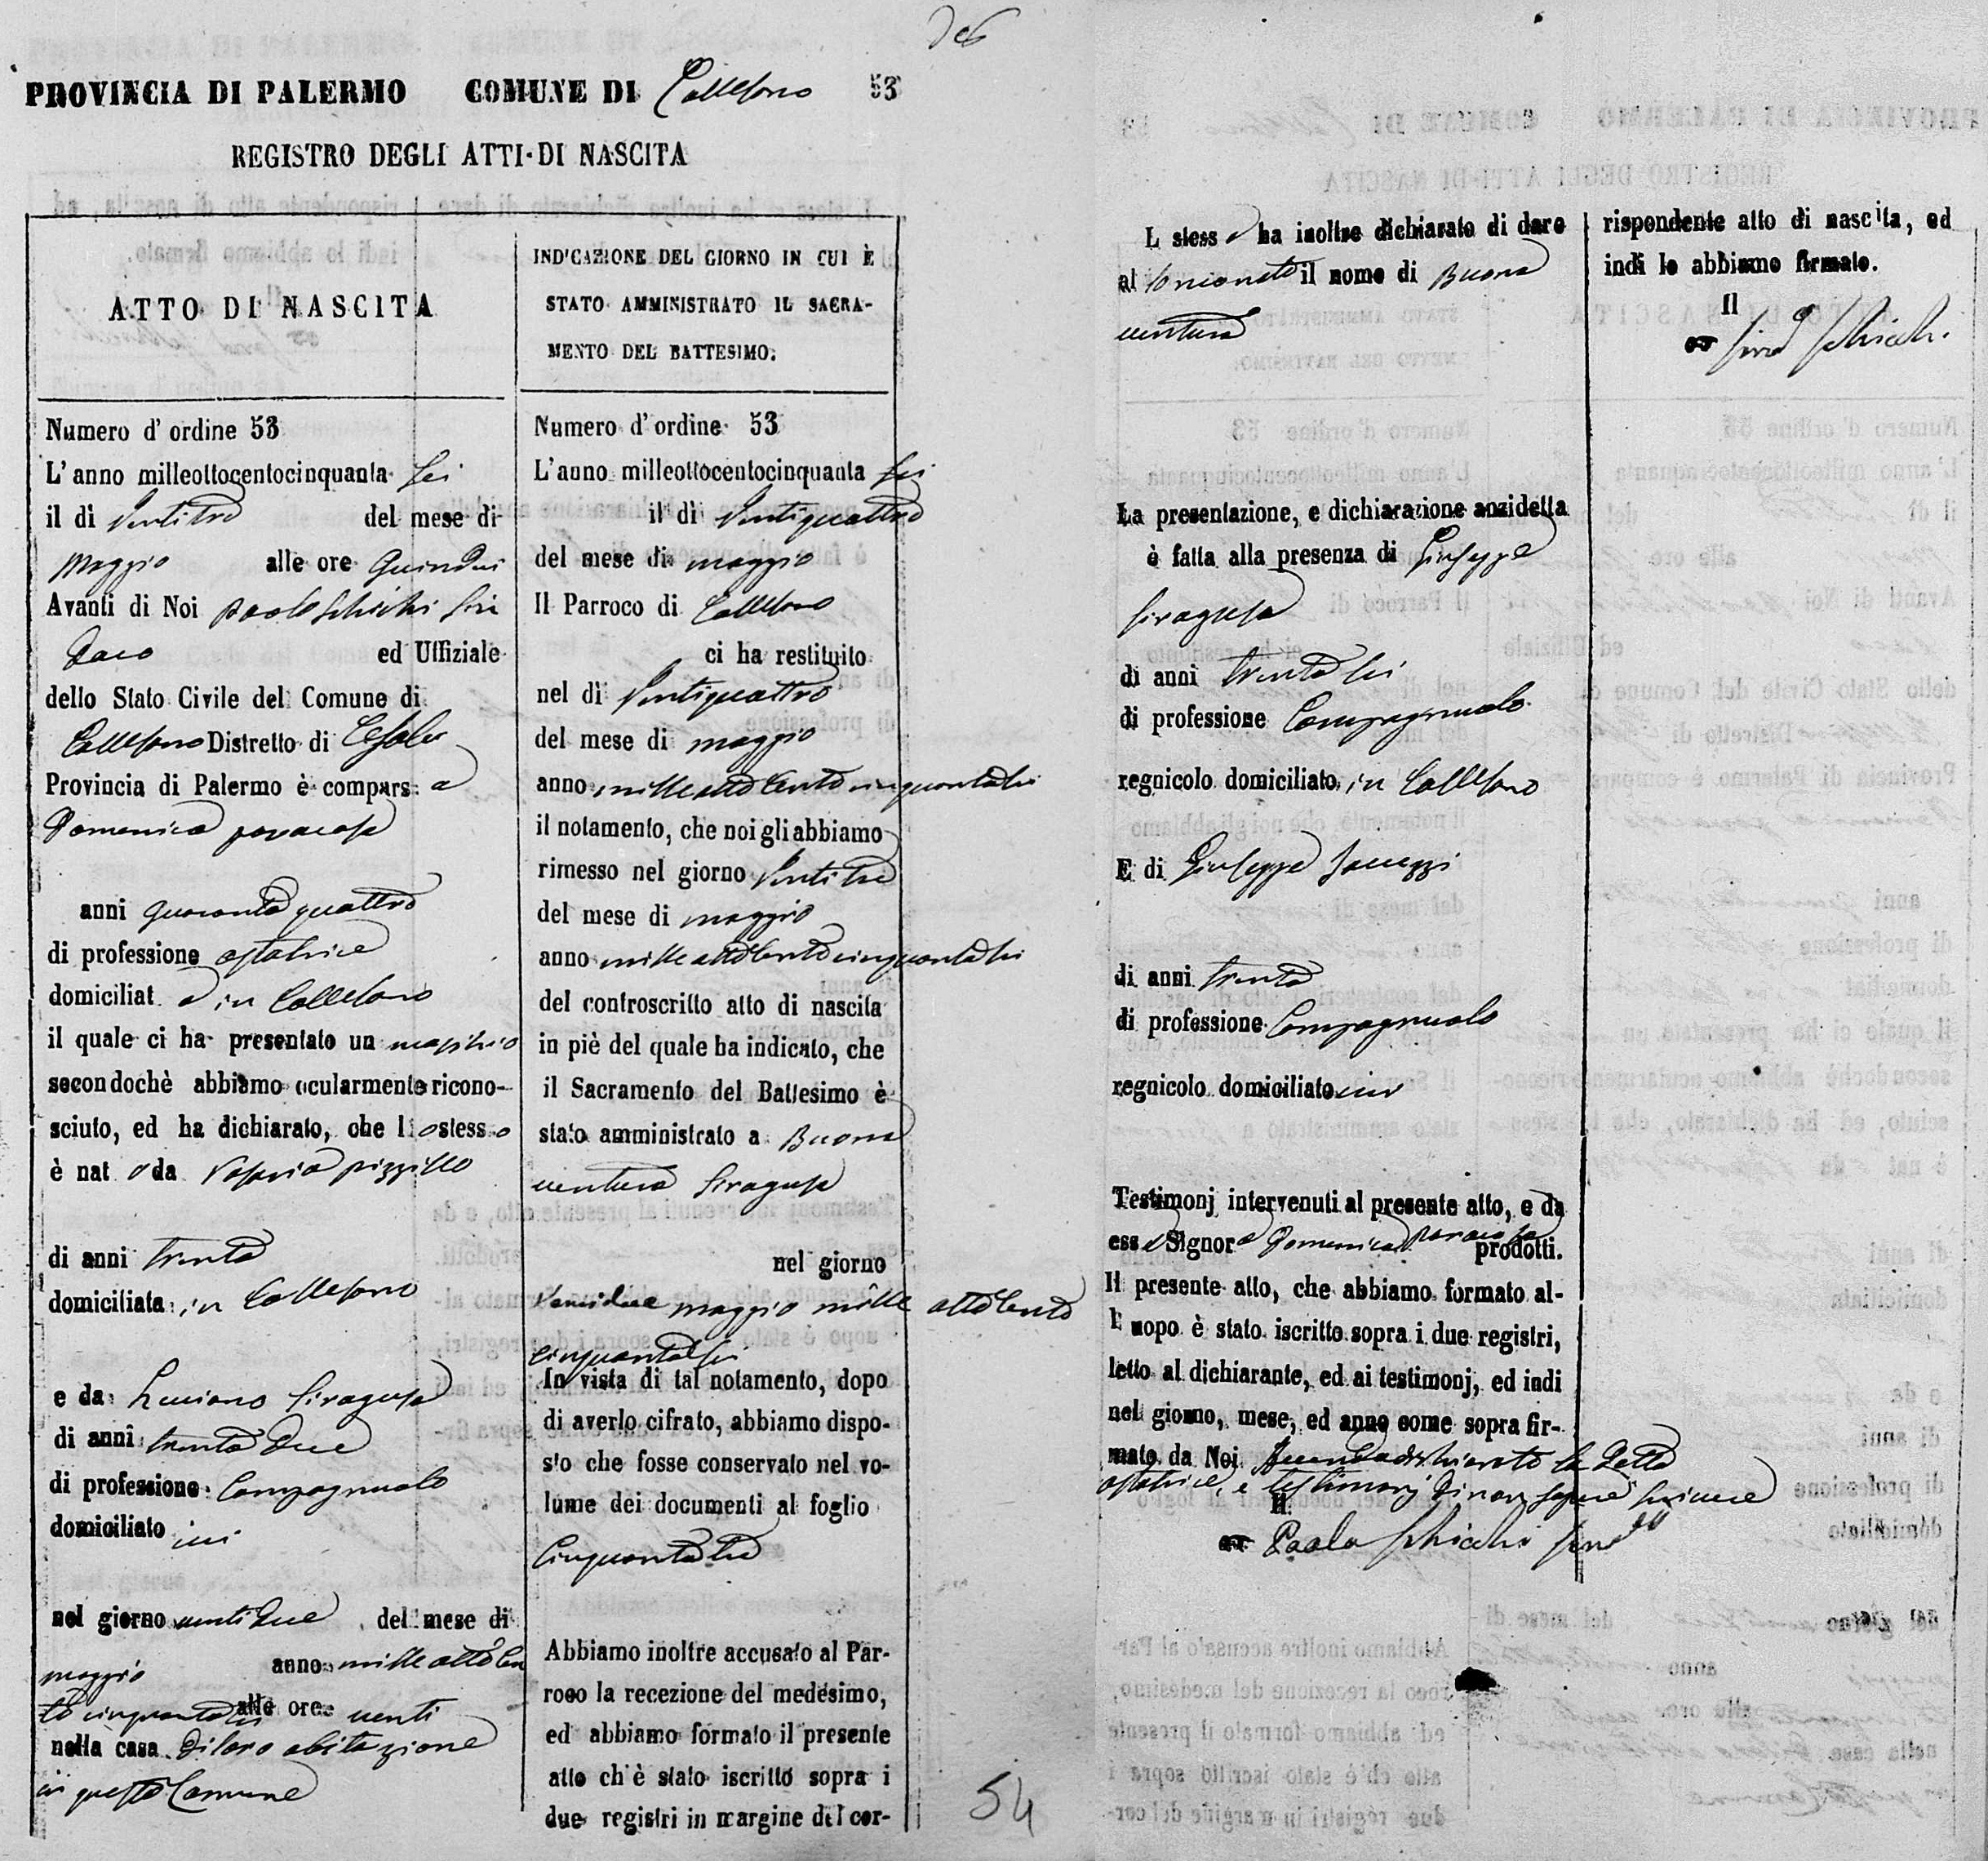 PROVINCIA DI PALERMO COMUNE DI Collesano 53
REGISTRO DEGLI ATTI DI NASCITA
ATTO DI NASCITA
Numero d'ordine 53
L'anno milleottocentocinquanta sei
il dì Ventitre del mese di
Maggio alle ore Quindici
Avanti di Noi Paolo Schicchi Sin
daco ed Uffiziale
dello Stato Civile del Comune di
Collesano Distretto di Cefalù
Provincia di Palermo è compars a
Domenica
anni quarantaquattro
di professione ostatrice
domiciliat a in Collesano
il quale ci ha presentato un maschio
secondochè abbiamo ocularmente ricono-
sciuto, ed ha dichiarato, che l o stess o
è nat o da Rosaria Pizzillo
di anni trenta
domiciliata in Collesano
e da Luciano Siragusa
di anni trentadue
di professione Campagnuolo
domiciliato ivi
nel giorno ventidue del mese di
maggio anno mille otto cen
to cinquantasei alle ore venti
nella casa di loro abitazione
in questo Comune
INDICAZIONE DEL GIORNO IN CUI È
STATO AMMINISTRATO IL SACRA-
MENTO DEL BATTESIMO.
Numero d'ordine 53
L'anno milleottocentocinquanta sei
il dì Ventiquattro
del mese di maggio
Il Parroco di Collesano
ci ha restituito
nel dì Ventiquattro
del mese di maggio
anno mille otto cento cinquantasei
il notamento, che noi gli abbiamo
rimesso nel giorno Ventitre
del mese di maggio
anno mille otto cento cinquantasei
del controscritto atto di nascita
in piè del quale ha indicato, che
il Sacramento del Battesimo è
stato amministrato a Buona
ventura Siragusa
nel giorno
Ventidue maggio mille otto cento
cinquantasei
In vista di tal notamento, dopo
di averlo cifrato, abbiamo dispo-
sto che fosse conservato nel vo-
lume dei documenti al foglio
Cinquantatre
Abbiamo inoltre accusato al Par-
roco la recezione del medesimo,
ed abbiamo formato il presente
atto ch'è stato iscritto sopra i
due registri in margine del cor-
54
L stess a ha inoltre dichiarato di dare
al neonato il nome di Buona
ventura
La presentazione, e dichiarazione anzidetta
è fatta alla presenza di Giuseppe
Siragusa
di anni trentasei
di professione Campagnuolo
regnicolo domiciliato in Collesano
E di Giuseppe Iacuzzi
di anni trenta
di professione Campagnuolo
regnicolo domiciliato ivi
Testimonj intervenuti al presente atto, e da
ess a Signor a Domenica prodotti.
Il presente atto, che abbiamo formato al-
l' uopo è stato iscritto sopra i due registri,
letto al dichiarante, ed ai testimonj, ed indi
nel giorno, mese, ed anno come sopra fir-
mato da Noi Avendo dichiarato la detta
ostatrice, e testimonj di non sapere scrivere
Il
Paolo Schicchi Sind
rispondente atto di nascita, ed
indi lo abbiamo firmato.
Il
Sind Schicchi